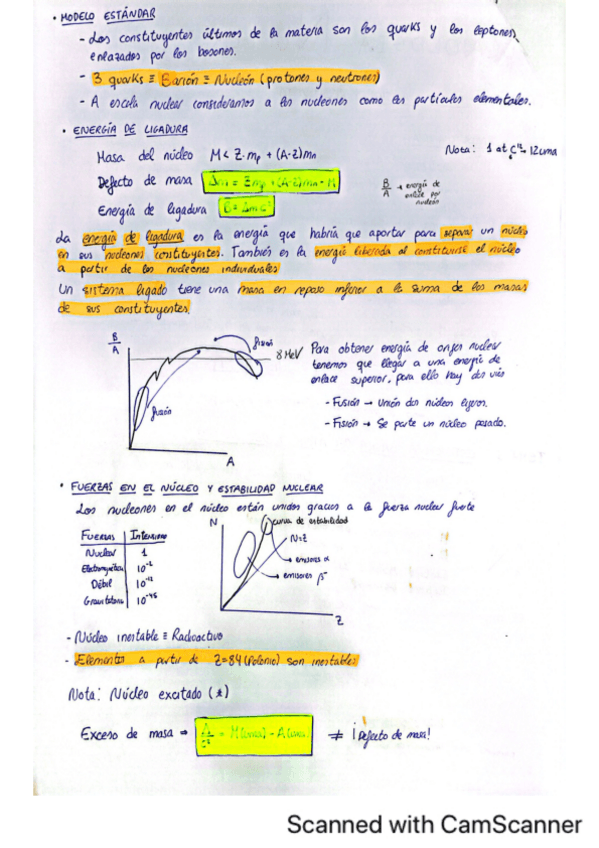 · MODELO ESTÁNDAR
- Los constituyentes últimos de la materia son los quarks y los leptones,
enlazados por los bosones.
- 3 quarks ≡ Barión ≡ Nucleón (protones y neutrones)
- A escala nuclear consideramos a los nucleones como las partículas elementales.
· ENERGÍA DE LIGADURA
Masa del núcleo M < Z·mp + (A-Z)mn
Nota: 1 at C¹² → 12uma
Defecto de masa Δm = Zmp + (A-Z)mn - M
B/A → energía de
enlace por
nucleón
Energía de ligadura B = Δmc²
La energía de ligadura es la energía que habría que aportar para separar un núcleo
en sus nucleones constituyentes. También es la energía liberada al constituirse el núcleo
a partir de los nucleones individuales
Un sistema ligado tiene una masa en reposo inferior a la suma de las masas
de sus constituyentes.
B/A
fisión
8 MeV
fusión
A
Para obtener energía de origen nuclear
tenemos que llegar a una energía de
enlace superior, para ello hay dos vías
- Fusión → Unión dos núcleos ligeros.
- Fisión → Se parte un núcleo pesado.
· FUERZAS EN EL NÚCLEO Y ESTABILIDAD NUCLEAR
Los nucleones en el núcleo están unidos gracias a la fuerza nuclear fuerte
Fuerzas | Intensidad
Nuclear | 1
Electromagnética | 10⁻²
Débil | 10⁻¹²
Gravitatoria | 10⁻⁴⁵
N
curva de estabilidad
N=Z
→ emisores α
→ emisores β⁻
Z
- Núcleo inestable ≡ Radioactivo
- Elementos a partir de Z=84 (Polonio) son inestables
Nota: Núcleo excitado (*)
Exceso de masa ⇒ Δ/c² = M(uma) - A(uma) ≠ ¡Defecto de masa!
Scanned with CamScanner